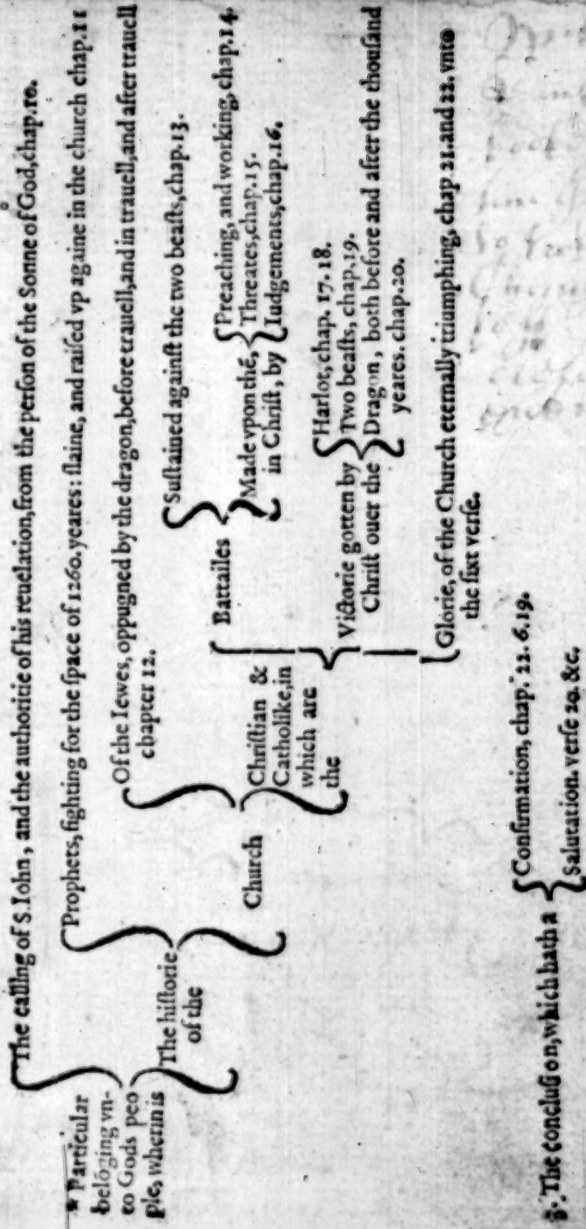 The calling of S. Iohn, and the authoritie of his reuelation, from the person of the Sonne of God, chap. 10.
* Particular
belōging vn-
to Gods peo
ple, wherin is
The historie
of the
Prophets, fighting for the space of 1260. yeares: slaine, and raised vp againe in the church chap. 11
Church
Of the Iewes, oppugned by the dragon, before trauell, and in trauell, and after trauell
chapter 12.
Christian &
Catholike, in
which are
the
Battailes
Sustained against the two beasts, chap. 13.
Made vpon thē,
in Christ, by
Preaching, and working, chap. 14.
Threates, chap. 15.
Iudgements, chap. 16.
Victorie gotten by
Christ ouer the
Harlot, chap. 17. 18.
Two beasts, chap. 19.
Dragon, both before and after the thousand
yeares. chap. 20.
Glorie, of the Church eternally triumphing, chap. 21. and 22. vnto
the sixt verse.
3. The conclusion, which hath a
Confirmation, chap. 22. 6. 19.
Salutation. verse 20. &c.